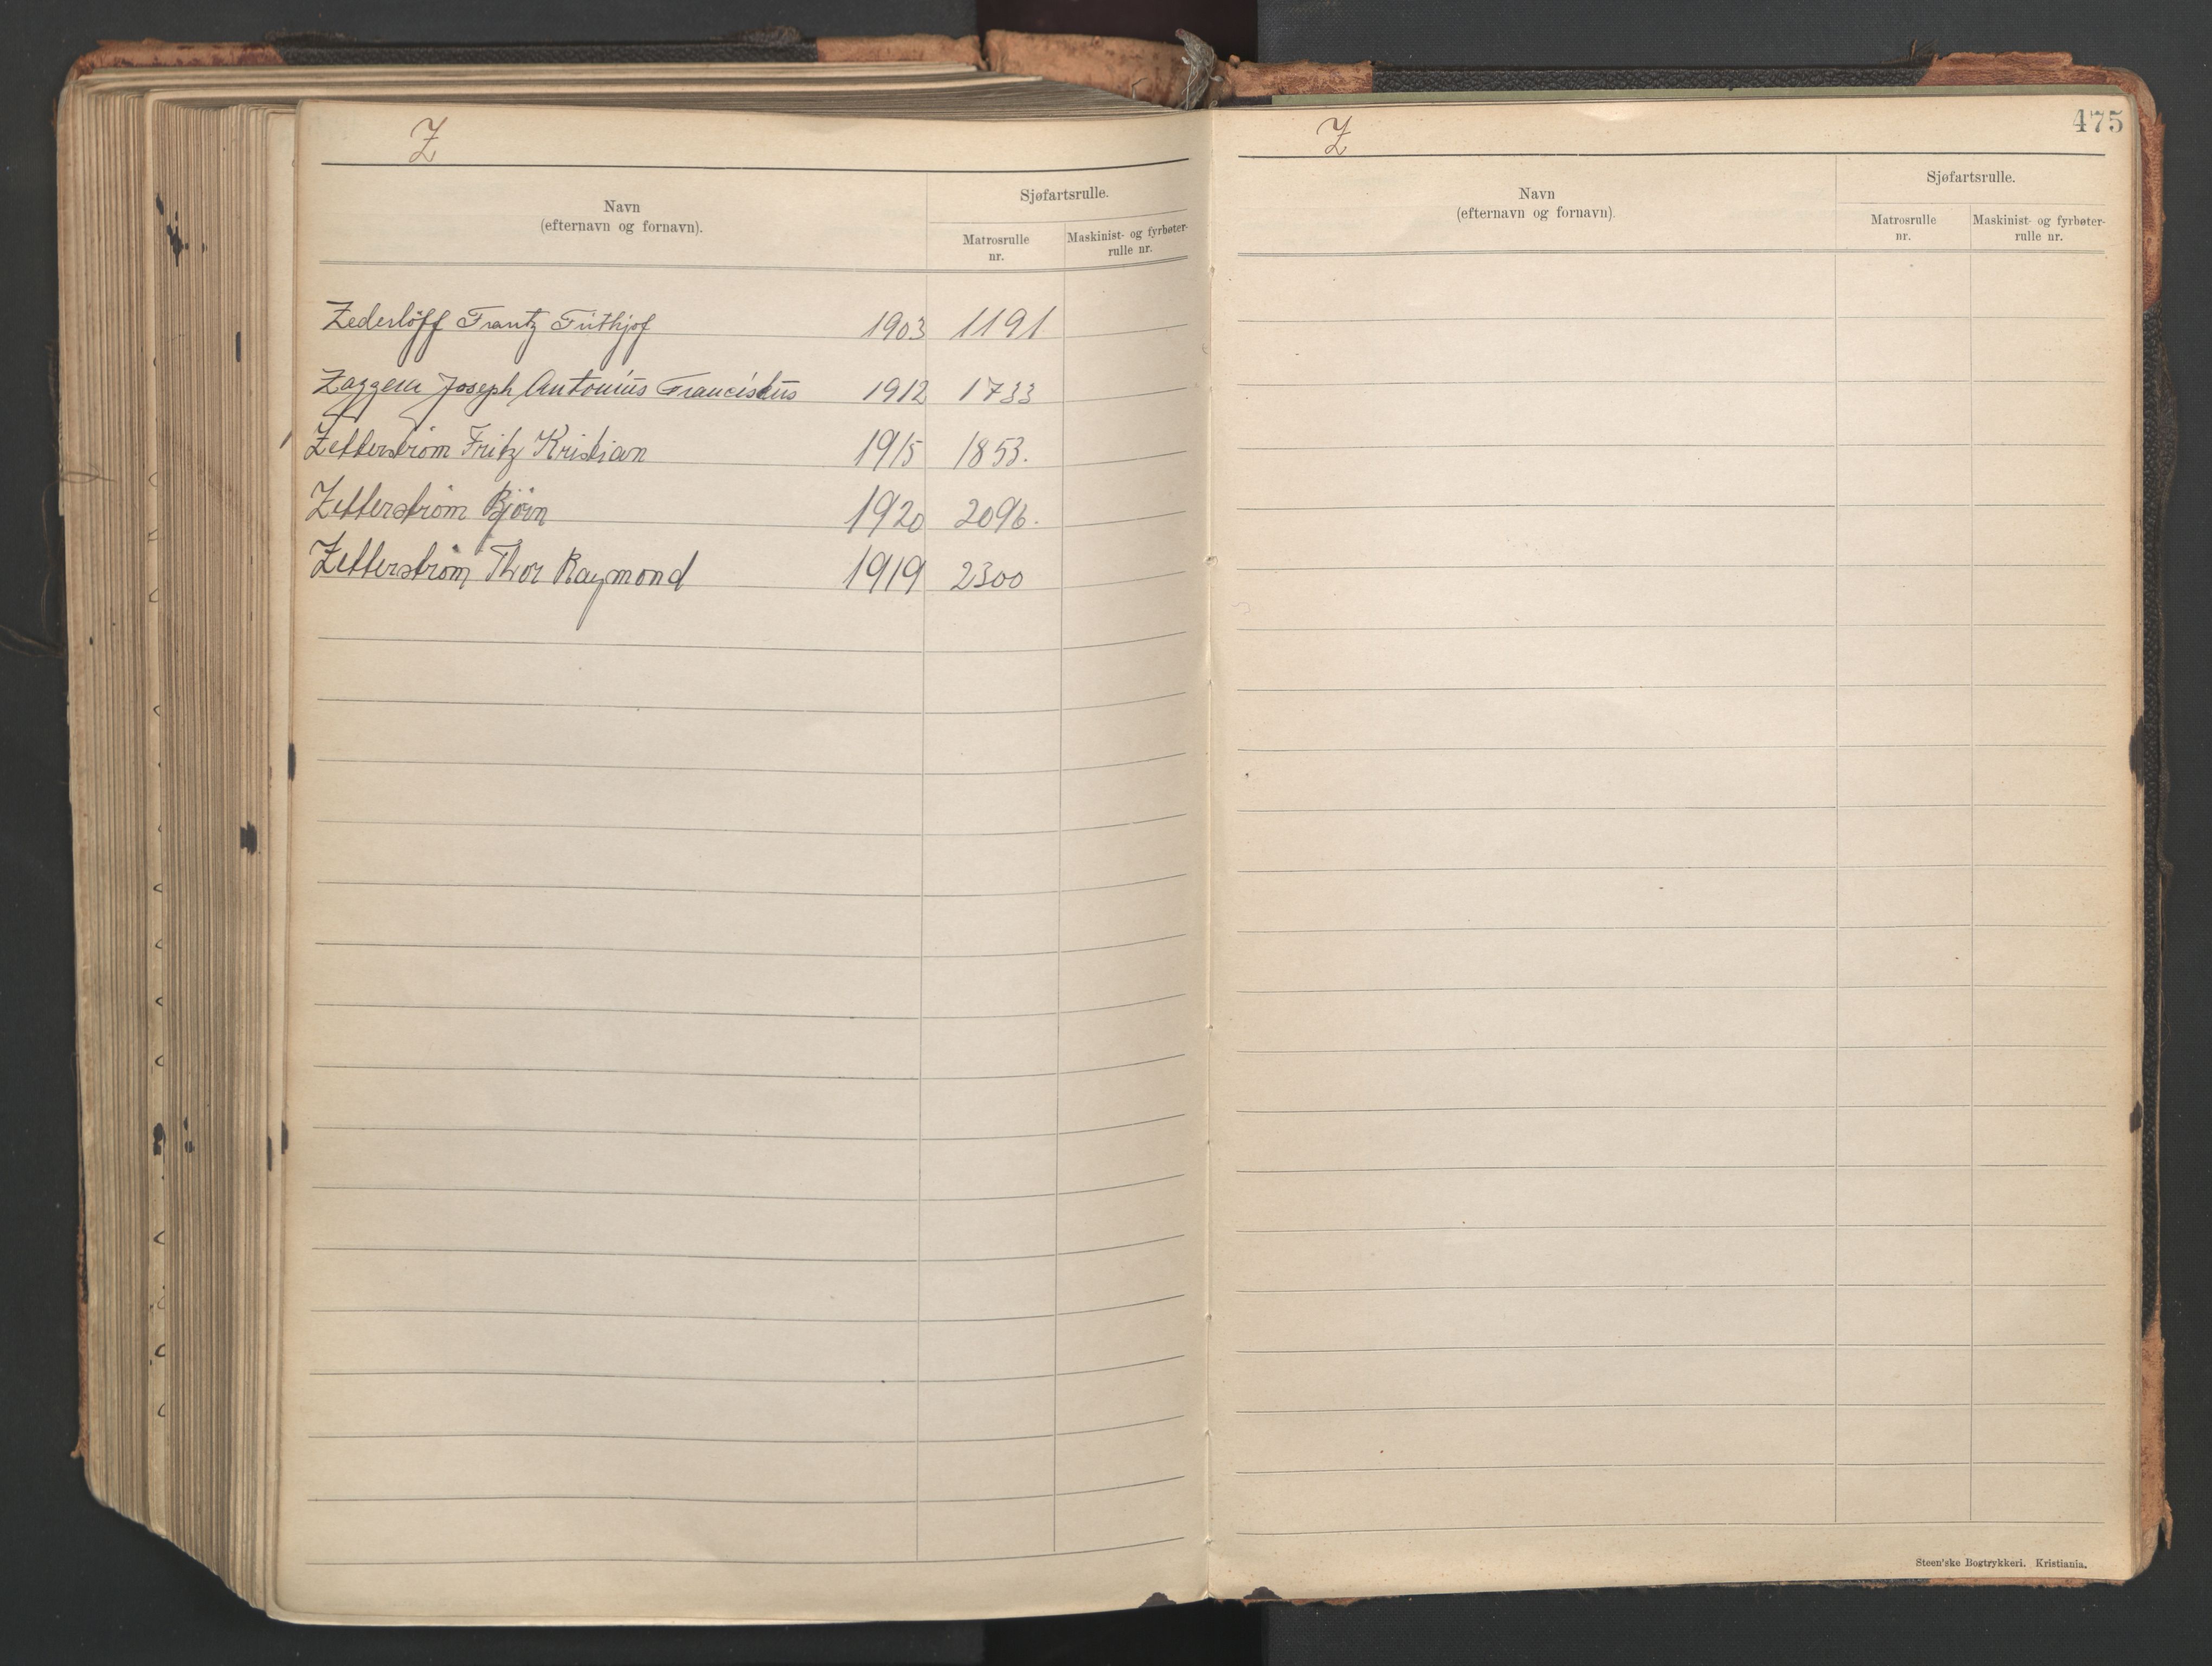 Z
Navn
(efternavn og fornavn).
Sjøfartsrulle.
Matrosrulle
nr.
Maskinist- og fyrbøter-
rulle nr.
Zederlöff Frantz Frithjof 1903 1191
Zaggem Joseph Antonius Franciskus 1912 1733
Zetterstrøm Fritz Kristian 1915 1853.
Zetterstrøm Bjørn 1920 2096.
Zetterstrøm Thor Raymond 1919 2300
Z
475
Navn
(efternavn og fornavn).
Sjøfartsrulle.
Matrosrulle
nr.
Maskinist- og fyrbøter-
rulle nr.
Steen'ske Bogtrykkeri. Kristiania.